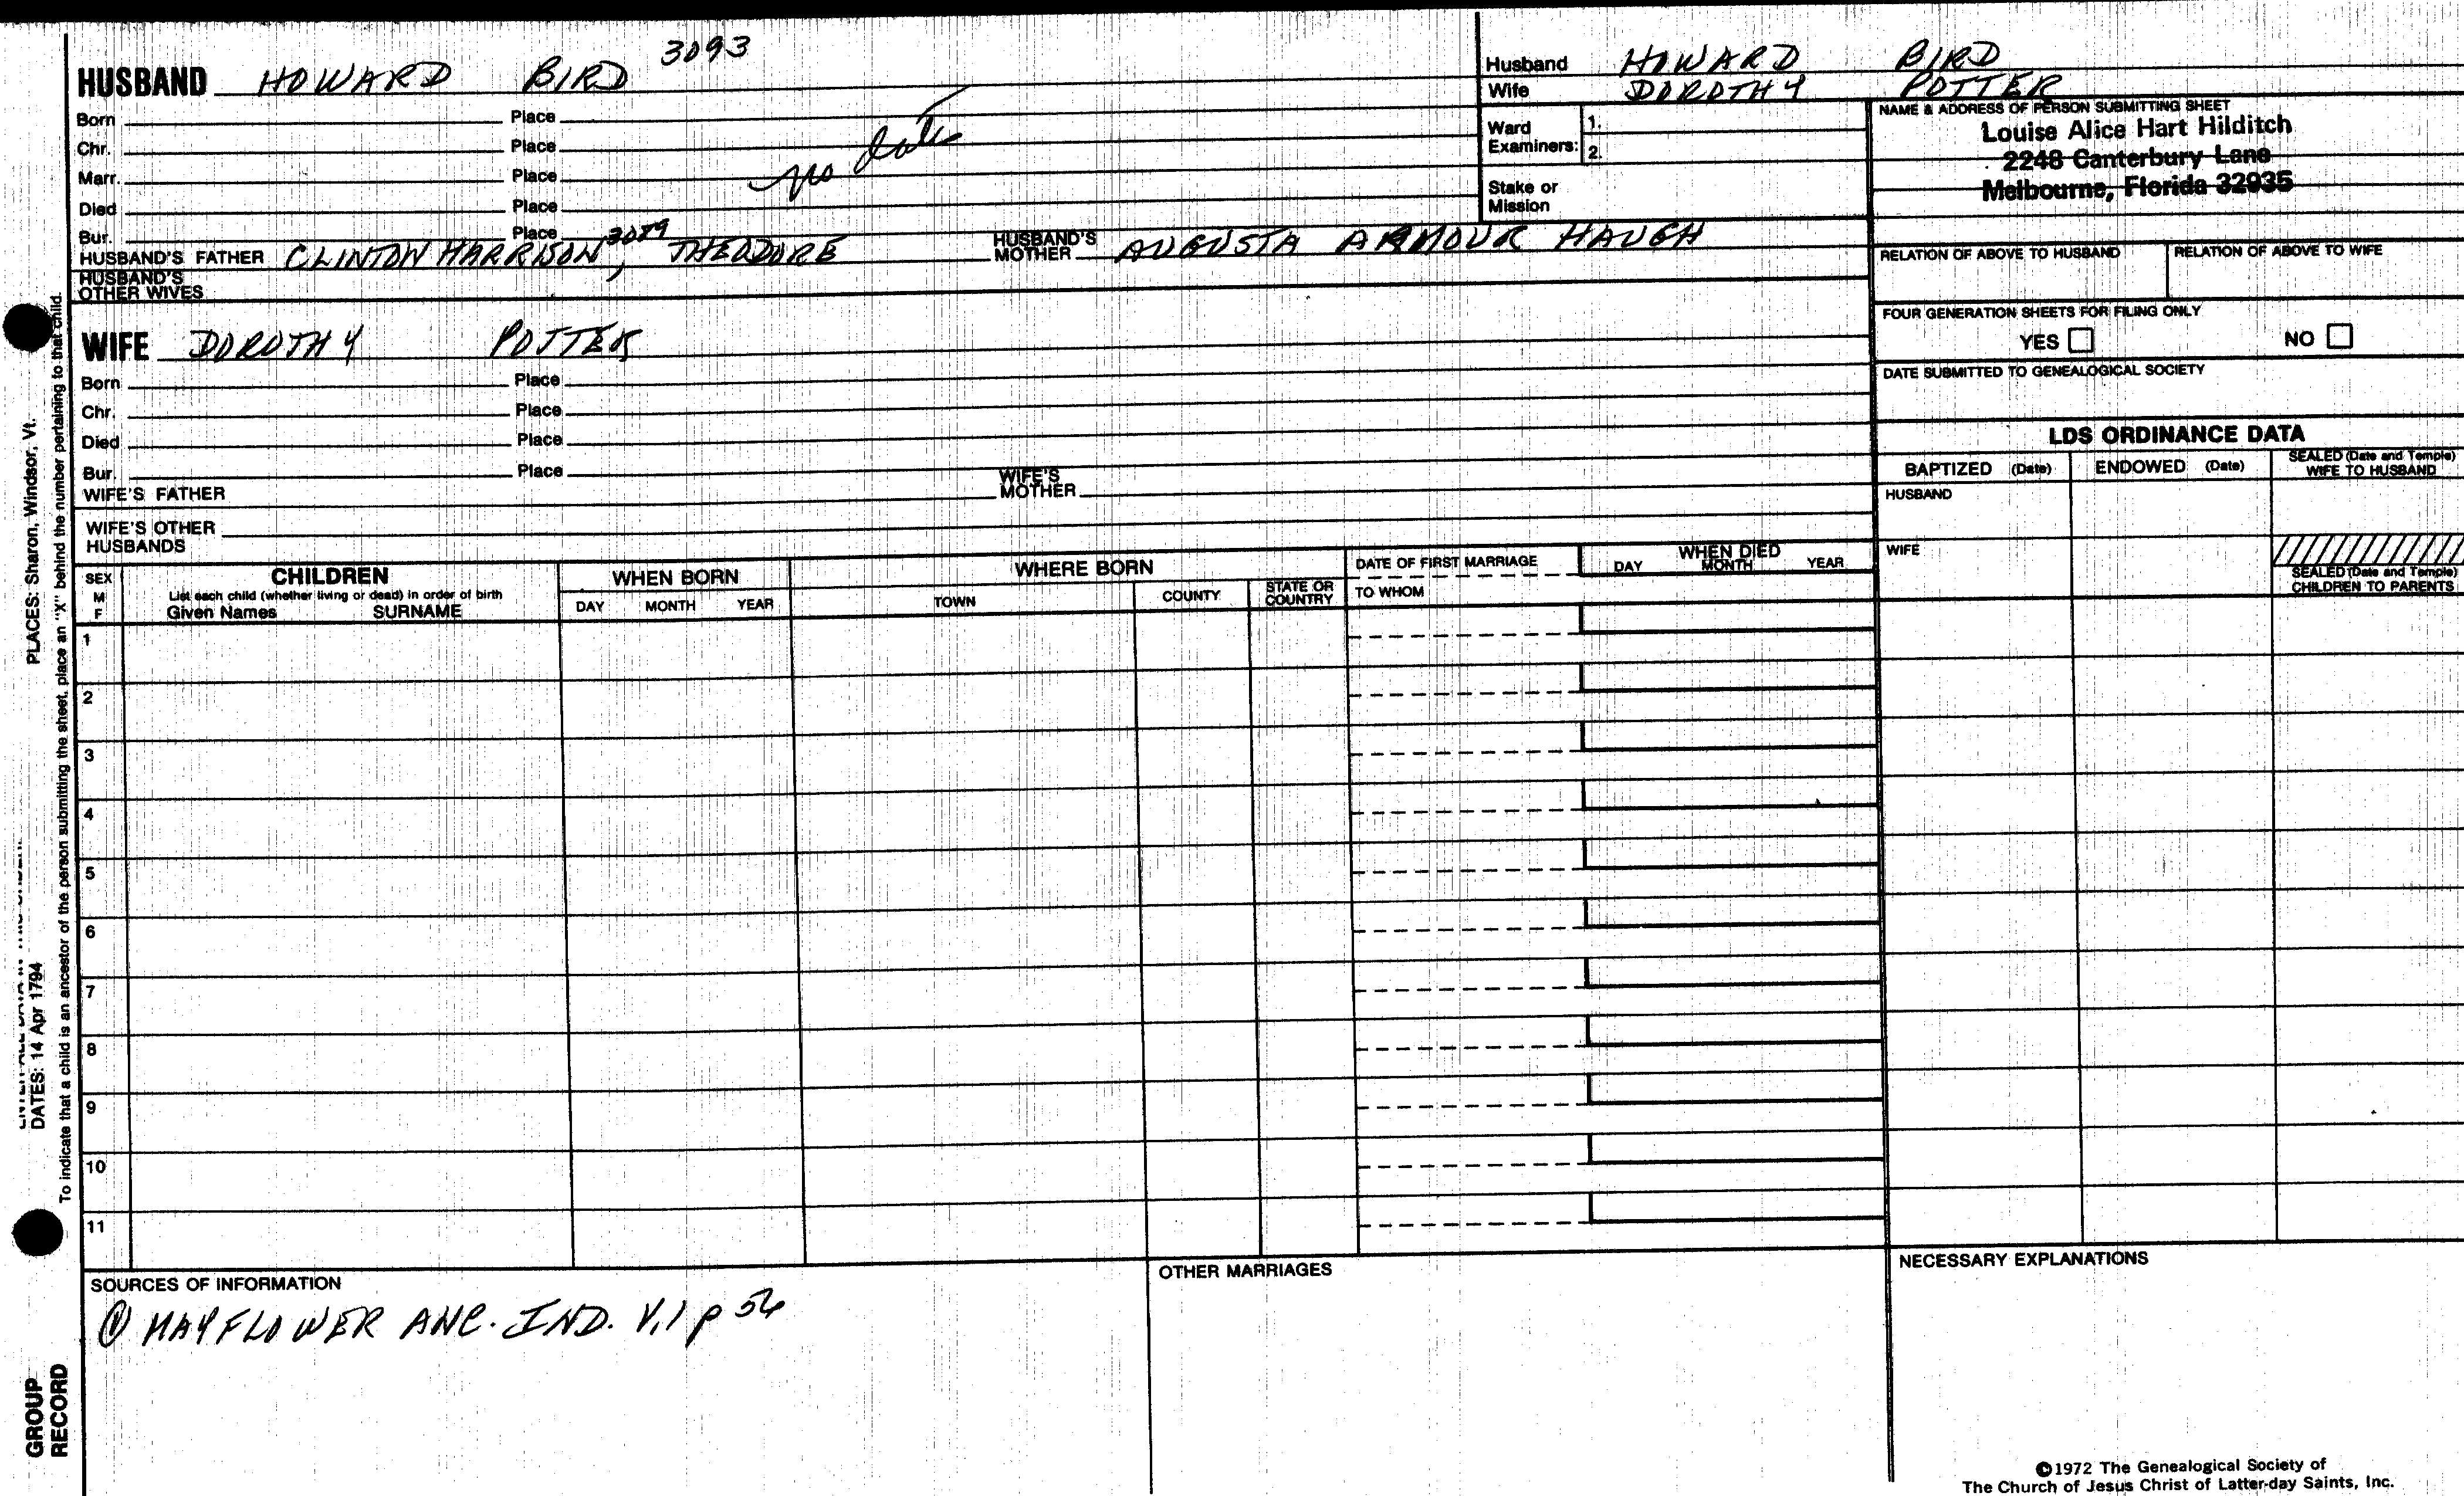 3093
HUSBAND HOWARD BIRD
Born Place
Chr. Place
Marr. Place
no date
Died Place
Bur. Place
HUSBAND'S FATHER CLINTON HARRISON 3089, THEODORE HUSBAND'S MOTHER AUGUSTA ARMOUR HAUGH
HUSBAND'S OTHER WIVES
WIFE DOROTHY POTTER
Born Place
Chr. Place
Died Place
Bur. Place
WIFE'S FATHER WIFE'S MOTHER
WIFE'S OTHER HUSBANDS
Husband HOWARD BIRD
Wife DOROTHY POTTER
Ward Examiners: 1.
2.
Stake or Mission
NAME & ADDRESS OF PERSON SUBMITTING SHEET
Louise Alice Hart Hilditch
2248 Canterbury Lane
Melbourne, Florida 32935
RELATION OF ABOVE TO HUSBAND RELATION OF ABOVE TO WIFE
FOUR GENERATION SHEETS FOR FILING ONLY
YES NO
DATE SUBMITTED TO GENEALOGICAL SOCIETY
LDS ORDINANCE DATA
BAPTIZED (Date) ENDOWED (Date) SEALED (Date and Temple) WIFE TO HUSBAND
HUSBAND
WIFE
SEALED (Date and Temple) CHILDREN TO PARENTS
SEX M F
CHILDREN
List each child (whether living or dead) in order of birth
Given Names SURNAME
WHEN BORN
DAY MONTH YEAR
WHERE BORN
TOWN COUNTY STATE OR COUNTRY
DATE OF FIRST MARRIAGE
TO WHOM
WHEN DIED
DAY MONTH YEAR
1
2
3
4
5
6
7
8
9
10
11
SOURCES OF INFORMATION
① MAYFLOWER ANC. IND. V.1 p 56
OTHER MARRIAGES
NECESSARY EXPLANATIONS
©1972 The Genealogical Society of
The Church of Jesus Christ of Latter-day Saints, Inc.
PLACES: Sharon, Windsor, Vt.
DATES: 14 Apr 1794
To indicate that a child is an ancestor of the person submitting the sheet, place an "X" behind the number pertaining to that child.
GROUP RECORD